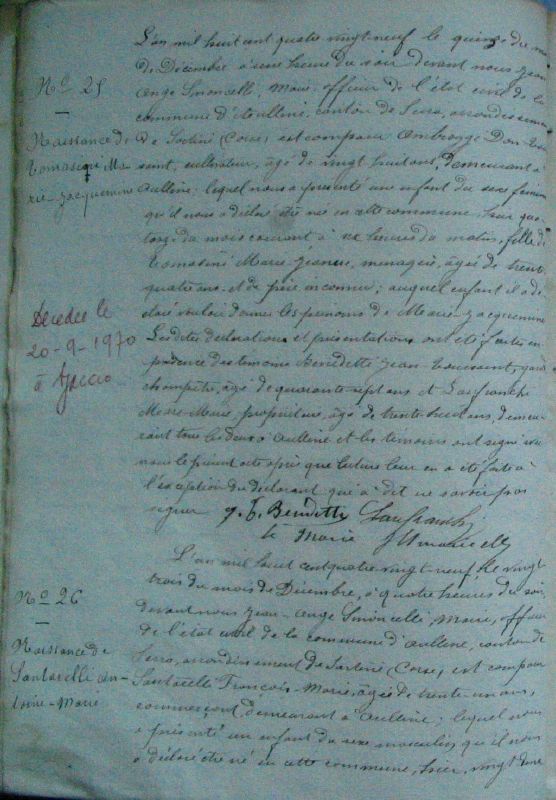 L'an mil huit cent quatre vingt-neuf le quinze du mois
de Décembre à une heure du soir devant nous Jean
Ange Simoncelli, Maire, officier de l'état civil de la
commune d'Aullène, canton de Serra, arrondissement
de Sartène (Corse) est comparu Ambroggi Don
cultivateur, âgé de vingt huit ans, demeurant à
Aullène; lequel nous a présenté un enfant du sexe féminin
qu'il nous a déclaré être né en cette commune, hier qua-
torze du mois courant à heures du matin, fille de
Tomasini Marie-Jeanne, ménagère, âgée de trente
quatre ans et de père inconnu; auquel enfant il a dé-
claré vouloir donner les prénoms de Marie-Jacquemine
Lesdites déclarations et présentations ont été faites en
présence des témoins Benedetti Jean Toussaint, garde
champêtre, âgé de quarante-sept ans et Lanfranchi
Marie propriétaire, âgé de trente-huit ans, demeu-
rant tous les deux à Aullène et les témoins ont signé avec
nous le présent acte après que lecture leur en a été faite à
l'exception du déclarant qui a dit ne savoir pas
signer J. T. Benedetti Lanfranchi
Le Maire Simoncelli
No 25
Naissance de
Tomasini Ma-
rie-Jacquemine
Décédée le
20-9-1970
à Ajaccio
L'an mil huit cent quatre vingt-neuf, le vingt
trois du mois de Décembre, à quatre heures du soir
devant nous Jean-Ange Simoncelli, Maire, officier
de l'état civil de la commune d'Aullène, canton de
Serra, arrondissement de Sartène (Corse), est comparu
Santarelli François-Marie, âgé de trente-un ans,
commerçant, demeurant à Aullène; lequel nous
a présenté un enfant du sexe masculin qu'il nous
a déclaré être né en cette commune, hier, vingt deux
No 26
Naissance de
Santarelli An-
toine-Marie